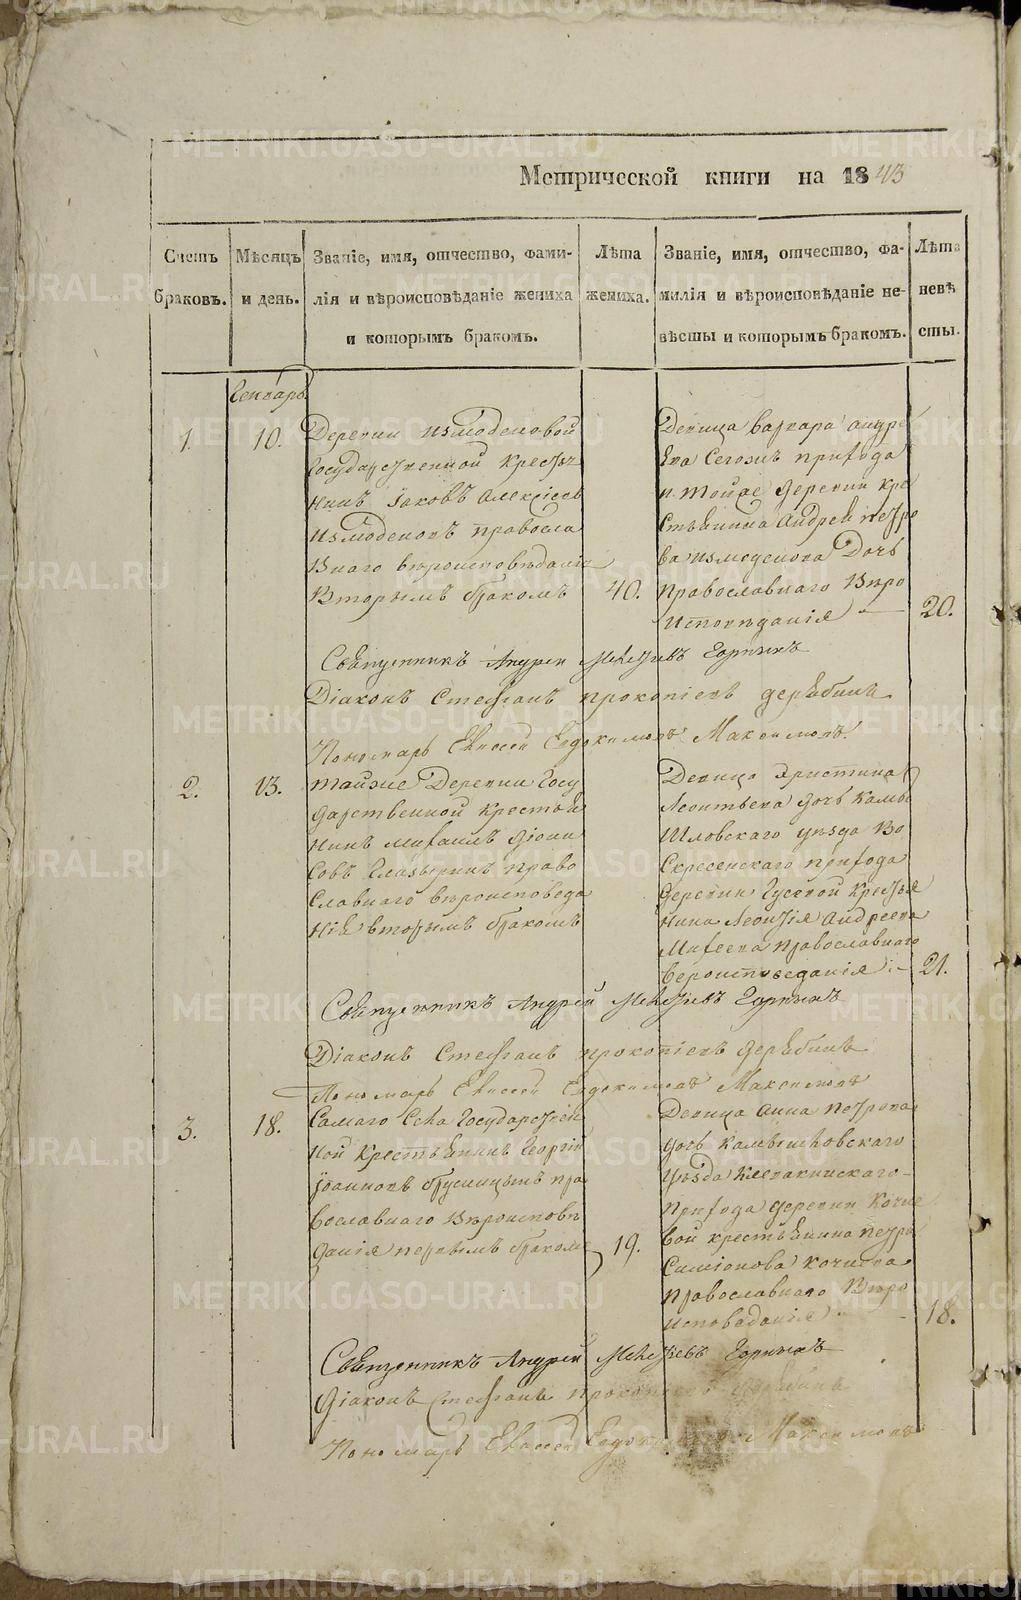 Метрической книги на 1843
Счетъ браковъ.
Мѣсяцъ и день.
Званіе, имя, отчество, фами-
лія и вѣроисповѣданіе жениха
и которымъ бракомъ.
Лѣта жениха.
Званіе, имя, отчество, фа-
милія и вѣроисповѣданіе не-
вѣсты и которымъ бракомъ.
Лѣта невѣ
сты.
Генварь
1.
10.
Деревни Измоденовой
Государственной Кресть
нинъ Іаковъ Алексіевъ
Измоденовъ правосла
внаго вѣроисповѣданія
Вторымъ бракомъ
40.
Девица Варвара Андре
ева Сегожъ прихода
и тойже деревни кре
стьянина Андрея Петро
ва Измоденова Дочь
православнаго Вѣро
исповѣданія
20.
Священникъ Андрей
Діаконъ Стефанъ Прокопіевъ Дерябинъ
Пономарь Евдокимовъ Максимовъ
2.
13.
Тойже Деревни Госу
дарственной крестья
нинъ Михаилъ Діони
совъ право
славнаго вероисповеда
нія вторымъ бракомъ
Девица Христина
Леонтьева дочь Камы
шловскаго уѣзда Во
скресенскаго прихода
деревни Гусевой крестья
нина Леонтія Андреева
Михеева православнаго
вероисповеданія
21.
Священникъ Андрей
Діаконъ Стефанъ Прокопіевъ Дерябинъ
Пономарь Евдокимовъ Максимовъ
3.
18.
Самаго Села Государствен
ной крестьянинъ Георгій
Іоанновъ Брусницынъ пра
вославнаго Вѣроисповѣ
данія первымъ бракомъ
19.
Девица Анна Петрова
дочь Камышловскаго
Уѣзда Клевакинскаго
прихода деревни Кочне
вой крестьянина Петра
Симіонова Кочнева
Православнаго Вѣро
исповаданія
18.
Священникъ Андрей
Діаконъ Стефанъ Прокопіевъ Дерябинъ
Пономарь Евдокимовъ Максимовъ
METRIKI.GASO-URAL.RU